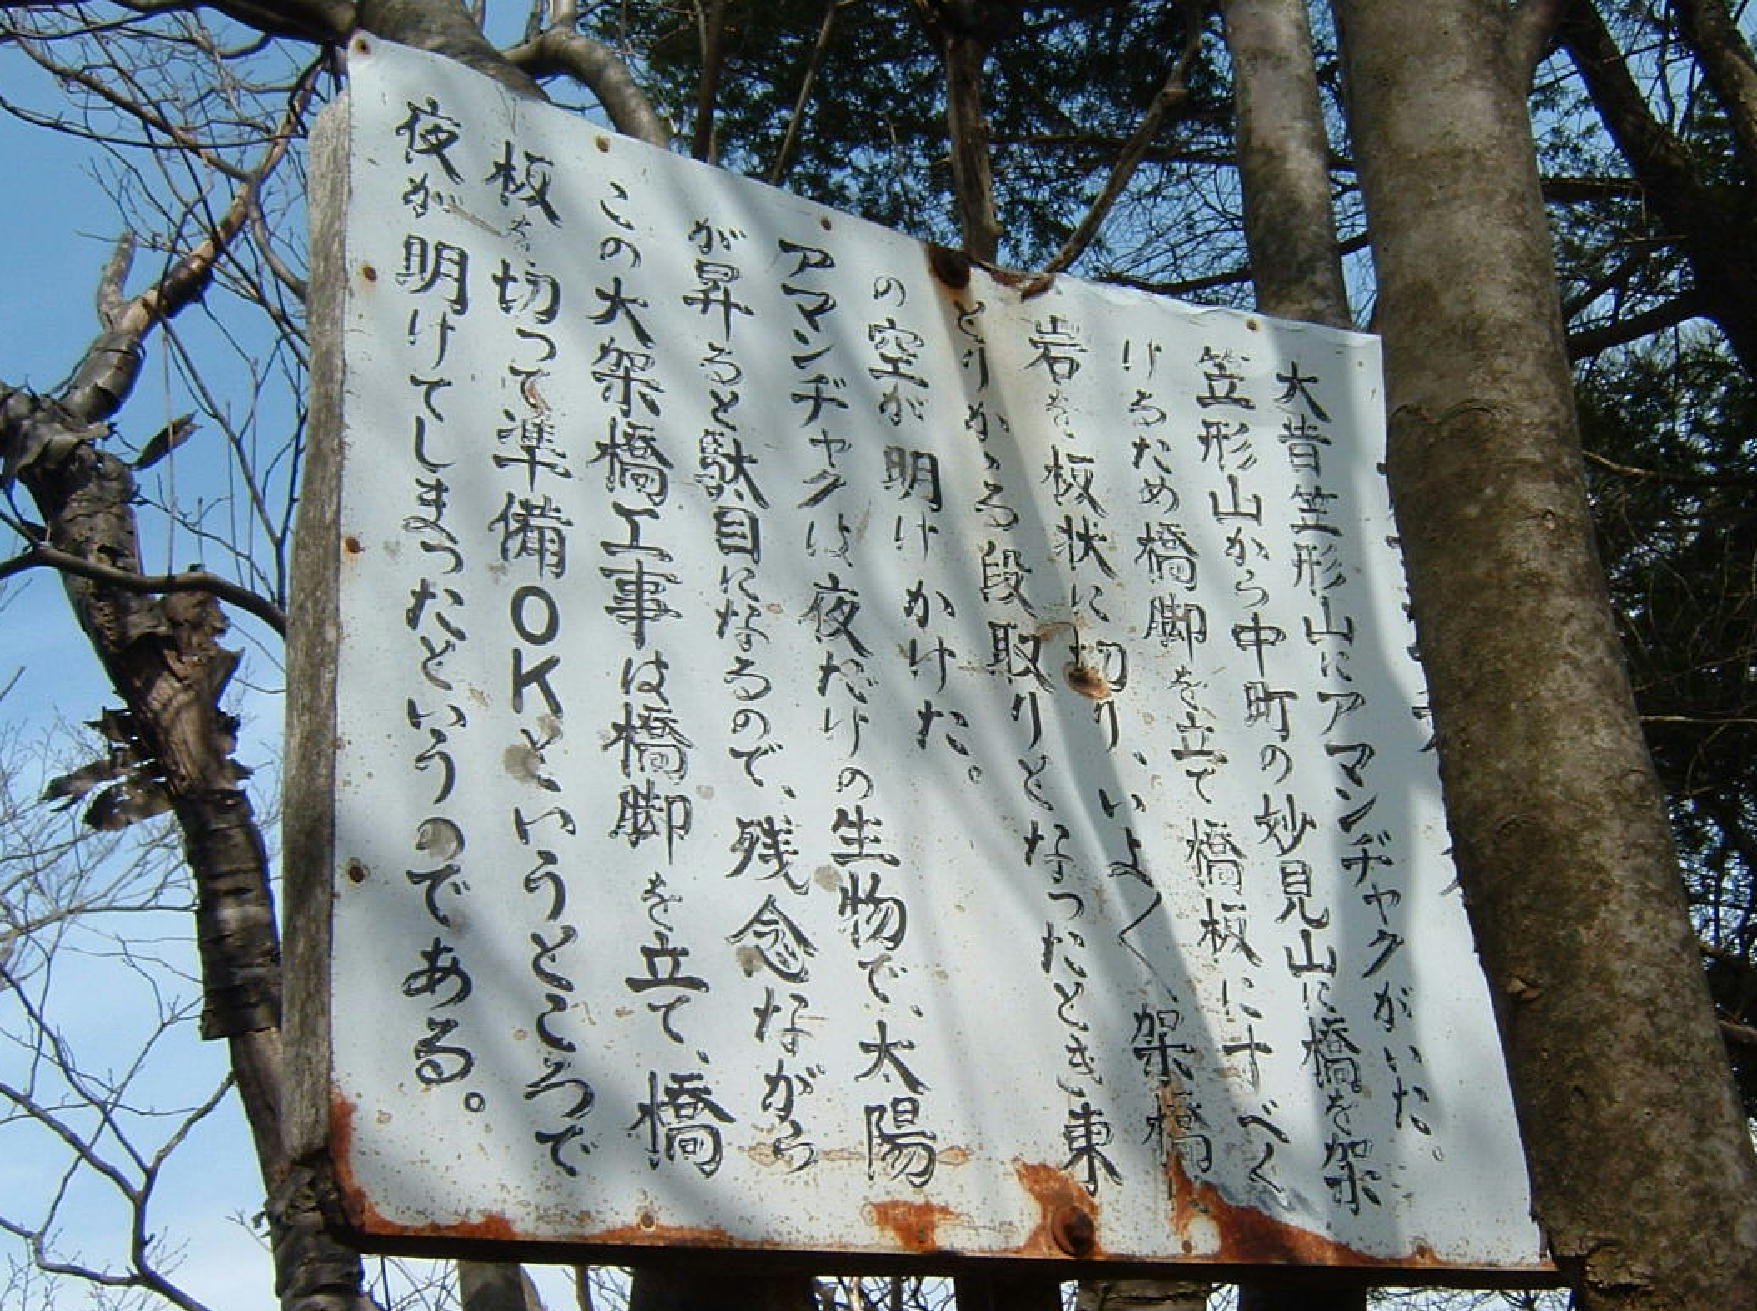 大昔笠形山にアマンヂャクがいた。
笠形山から中町の妙見山に橋を架
けるため橋脚を立て橋板にすべく
岩を板状に切り、いよ〱架橋
とりかゝる段取りとなったとき東
の空が明けかけた。
アマンヂャクは夜だけの生物で、太陽
が昇ると駄目になるので、残念ながら
この大架橋工事は橋脚を立て、橋
板を切って準備OKというところで
夜が明けてしまったというのである。